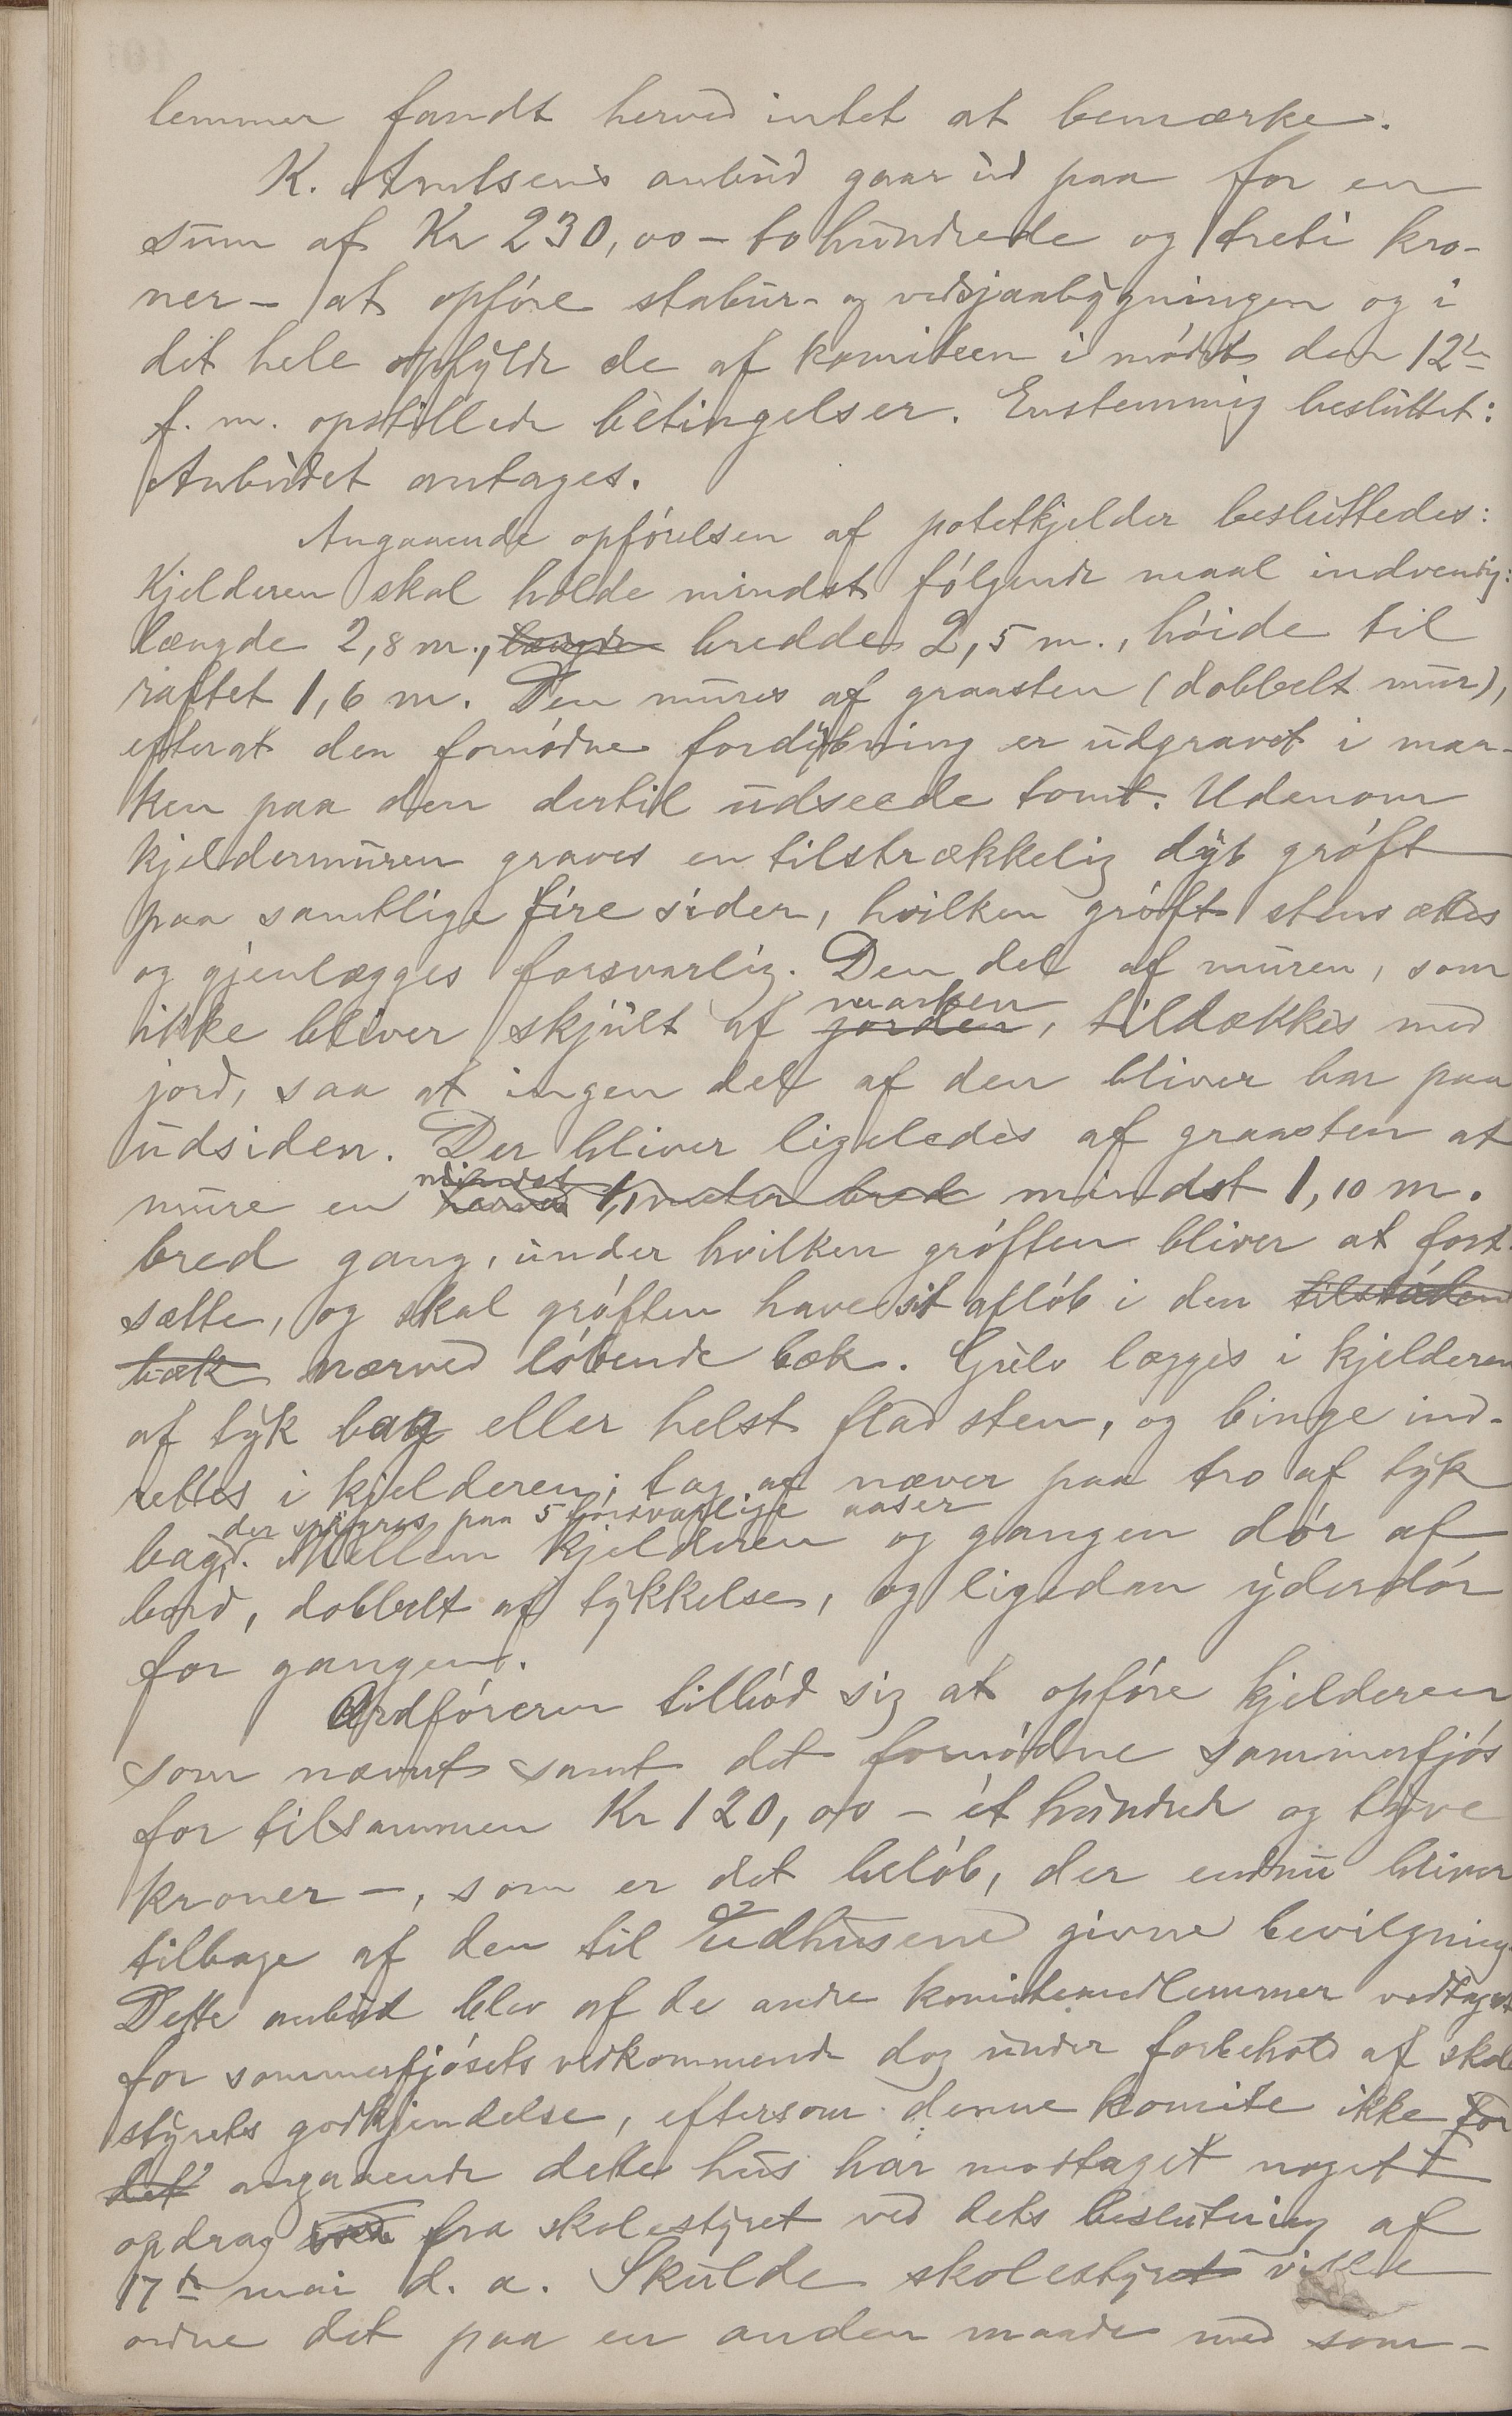 lemmer fandt herved intet at bemærke.
K. Arntsens anbud gaar ud paa for en
sum af Kr 230,00 – to hundrede og treti kro-
ner – at opføre stabur- og vedsjaabygningen og i
det hele opfylde de af komiteen i mødet den 12te
f. m. opstillede betingelser. Enstemmig besluttet:
Anbudet antages.
Angaaende opførelsen af potetkjelder besluttedes:
Kjelderen skal holde mindst følgende maal indvendig:
længde 2,8 m., længde bredde 2,5 m., høide til
raftet 1,6 m. Den mures af graasten (dobbelt mur),
efterat den fornødne fordybning er udgravet i mar-
ken paa den dertil udseede tomt. Udenom
kjeldermuren graves en tilstrækkelig dyb grøft
paa samtlige fire sider, hvilken grøft stensættes
og gjenlægges forsvarlig. Den del af muren, som
ikke bliver skjult af jorden marken, tildækkes med
jord, saa at ingen del af den bliver bar paa
udsiden. Der bliver ligeledes af graasten at
mure en mindst 1,1 meter bred mindst 1,10 m.
bred gang, under hvilken grøften bliver at fort-
sætte, og skal grøften have sit afløb i den tilstødende
bæk nærved løbende bæk. Gulv lægges i kjelderen
af tyk baq eller helst flad sten, og binge ind-
rettes i kjelderen; tag af næver paa tro af tyk
der spigres paa 5 forsvarlige aaser
baq. Mellem kjelderen og gangen dør af
bord, dobbelt af tykkelse, og ligedan yderdør
for gangen.
Ordføreren tilbød sig at opføre kjelderen
som nævnt samt det fornødne sommerfjøs
for tilsammen Kr 120,00 – et hundrede og tyve
kroner –, som er det beløb, der endnu bliver
tilbage af den til Udhusene givne bevilgning.
Dette anbud blev af de andre komitemedlemmer vedtaget
for sommerfjøsets vedkommende dog under forbehold af skole
styrets godkjendelse, eftersom denne komite ikke for
det angaaende dette hus har modtaget noget
opdrag fra skolestyret ved dets beslutning af
17de mai d. a. Skulde skolestyret ville
ordne det paa en anden maade med som-